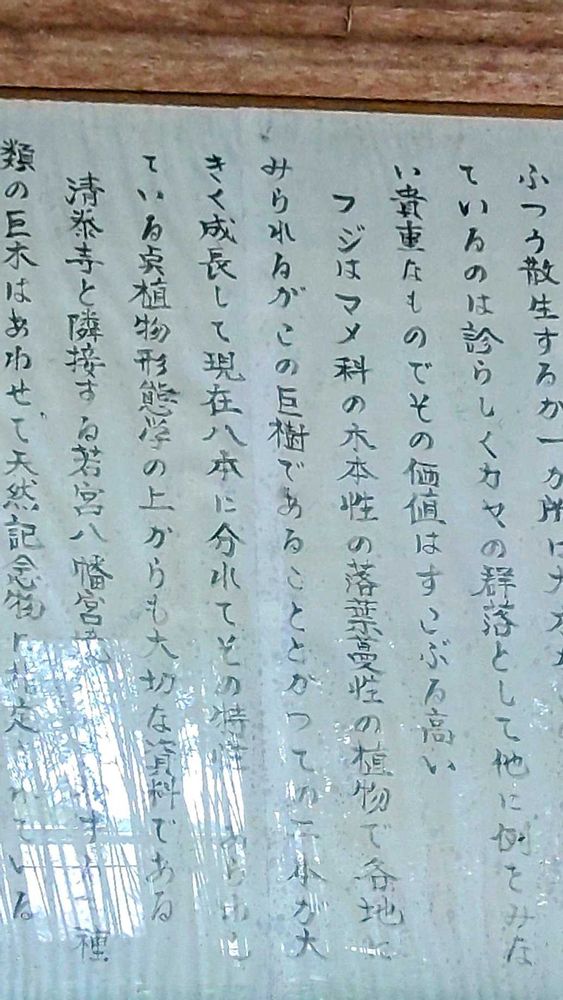 ふつう散生するが一カ所に大木が
ているのは診らしくカヤの群落として他に例をみな
い貴重なものでその価値はすこぶる高い
フジはマメ科の木本性の落葉蔓性の植物で各地に
みられるがこの巨樹であることとかつての一本が大
きく成長して現在八本に分れてその特性
ている点植物形態学の上からも大切な資料である
清泰寺と隣接する若宮八幡宮境 種
類の巨木はあわせて天然記念物に指定されている